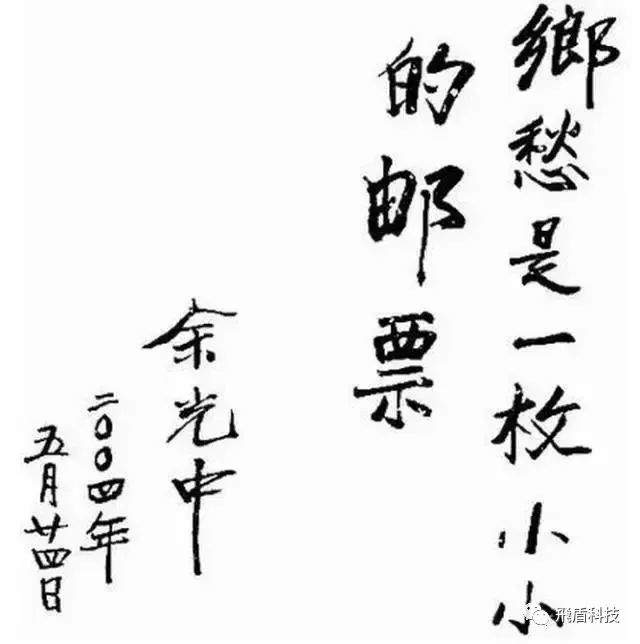 鄉愁是一枚小小
的邮票
余光中
二〇〇四年
五月廿四日
飛盾科技